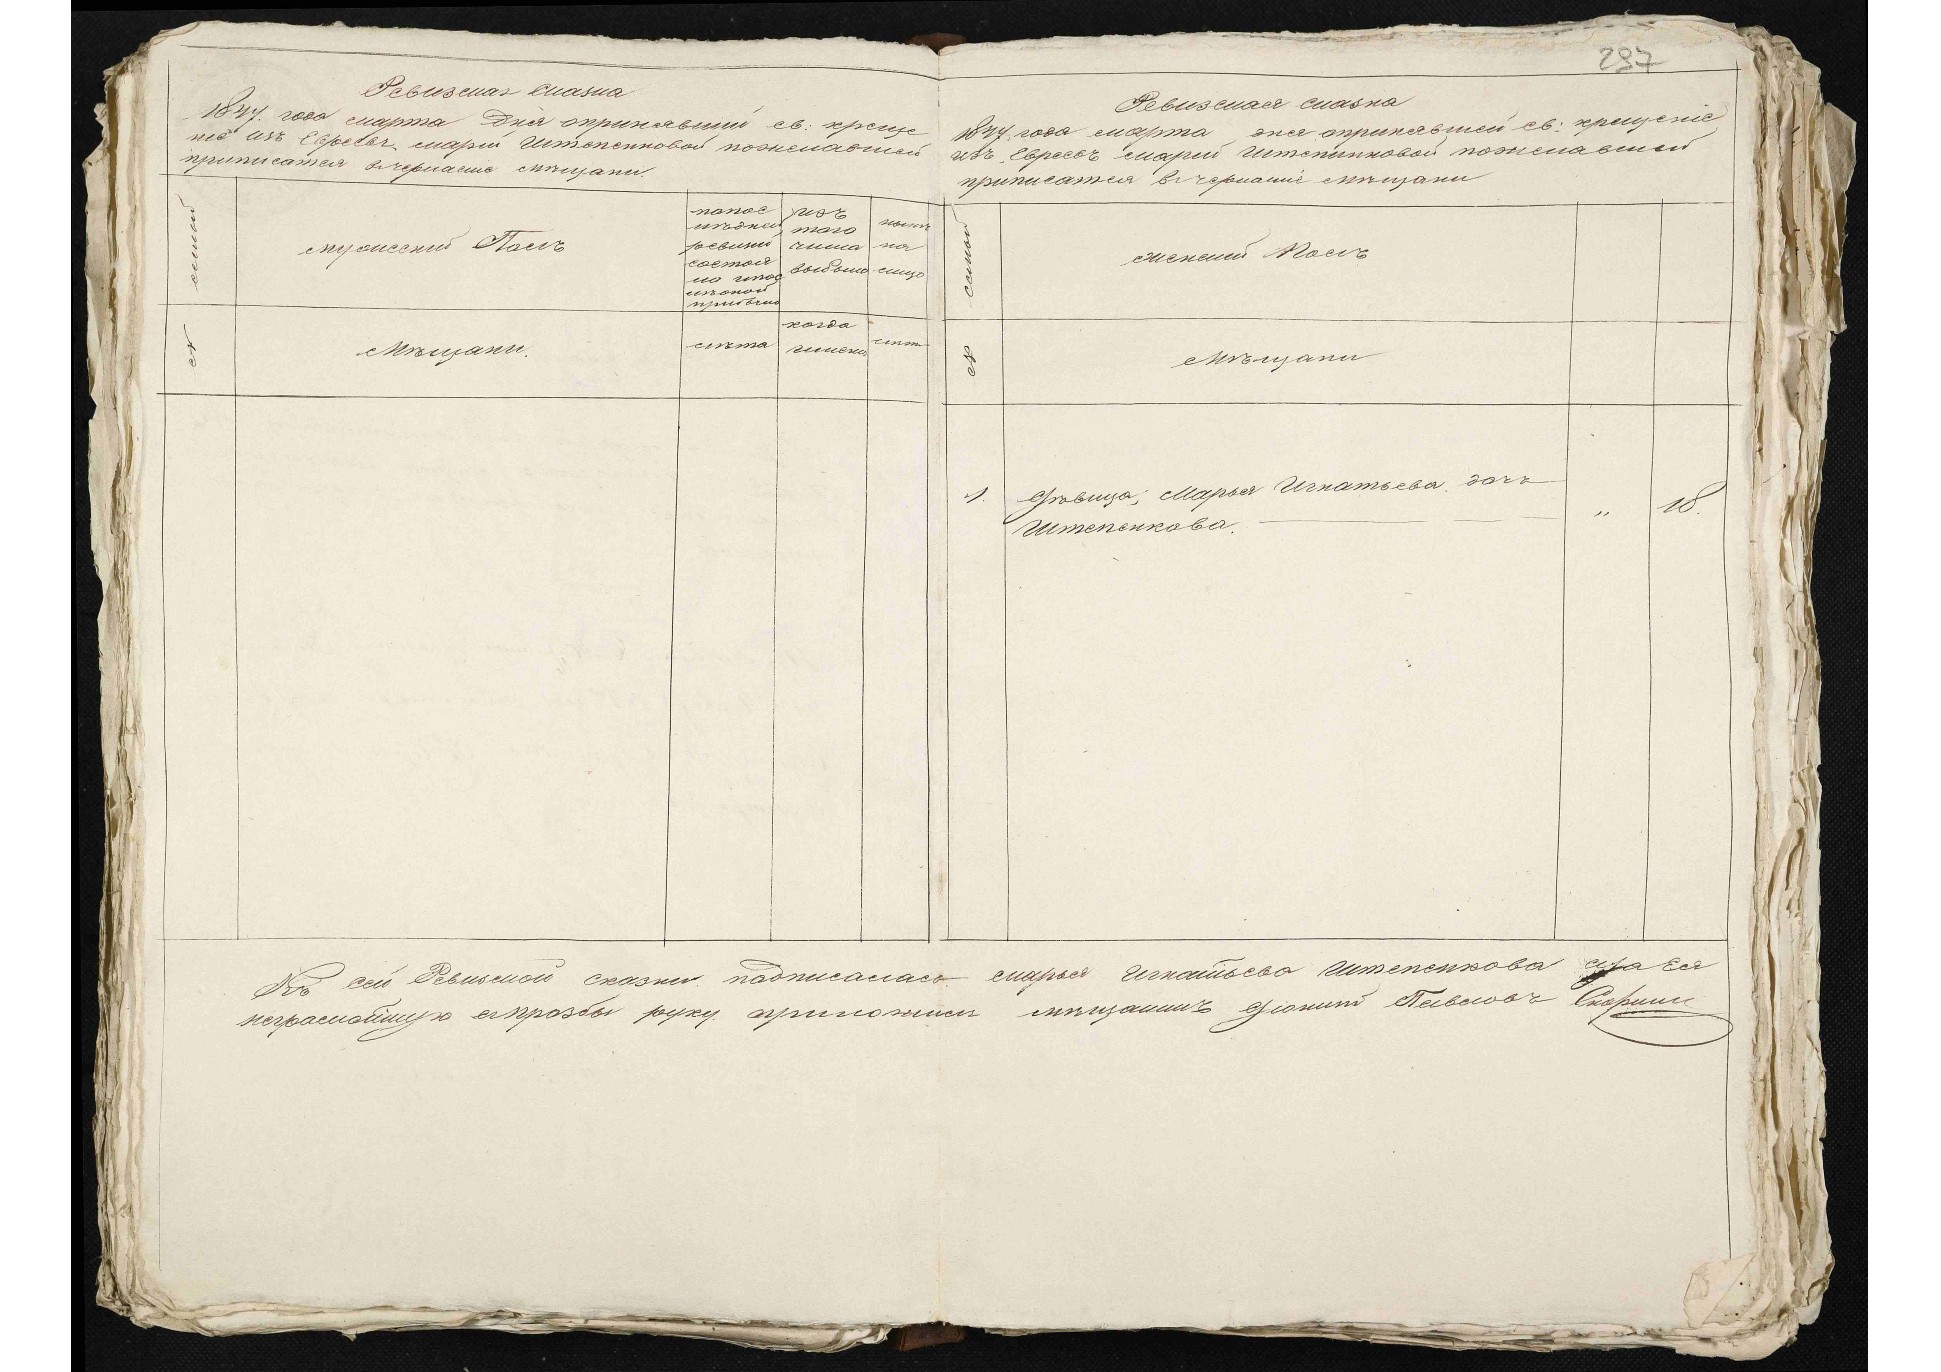 297
Ревизская сказка
1844. года марта Дня опринявшей св: креще
ние изъ Евреевъ марии Штепенковой пожелавшей
приписатся вчеркаские мѣщани.
семьи
мужеской Полъ
попос
лѣдней
ревизии
состоя
ло ипос
лѣоной
прибыло
изъ
того
числа
выбыло
нынѣ
на
лицо
№
Мѣщани.
лѣта
когда
имено
лѣт
Ревизская сказка
1844 года марта дня опринявшей св: крещение
изъ Евреевъ марии Штепенковой пожелавшей
приписатся в черкаские мѣщани
семьи
женский Полъ
№
Мѣщани
1. Дѣвица; Марья Игнатьева дочь
Штепенкова. „ 18.
Къ сей Ревизской сказки подписалась марья Игнатьева Штепенкова а за Ея
неграмотную епрозбы руку приложилъ мещанинъ Дионий Павловъ